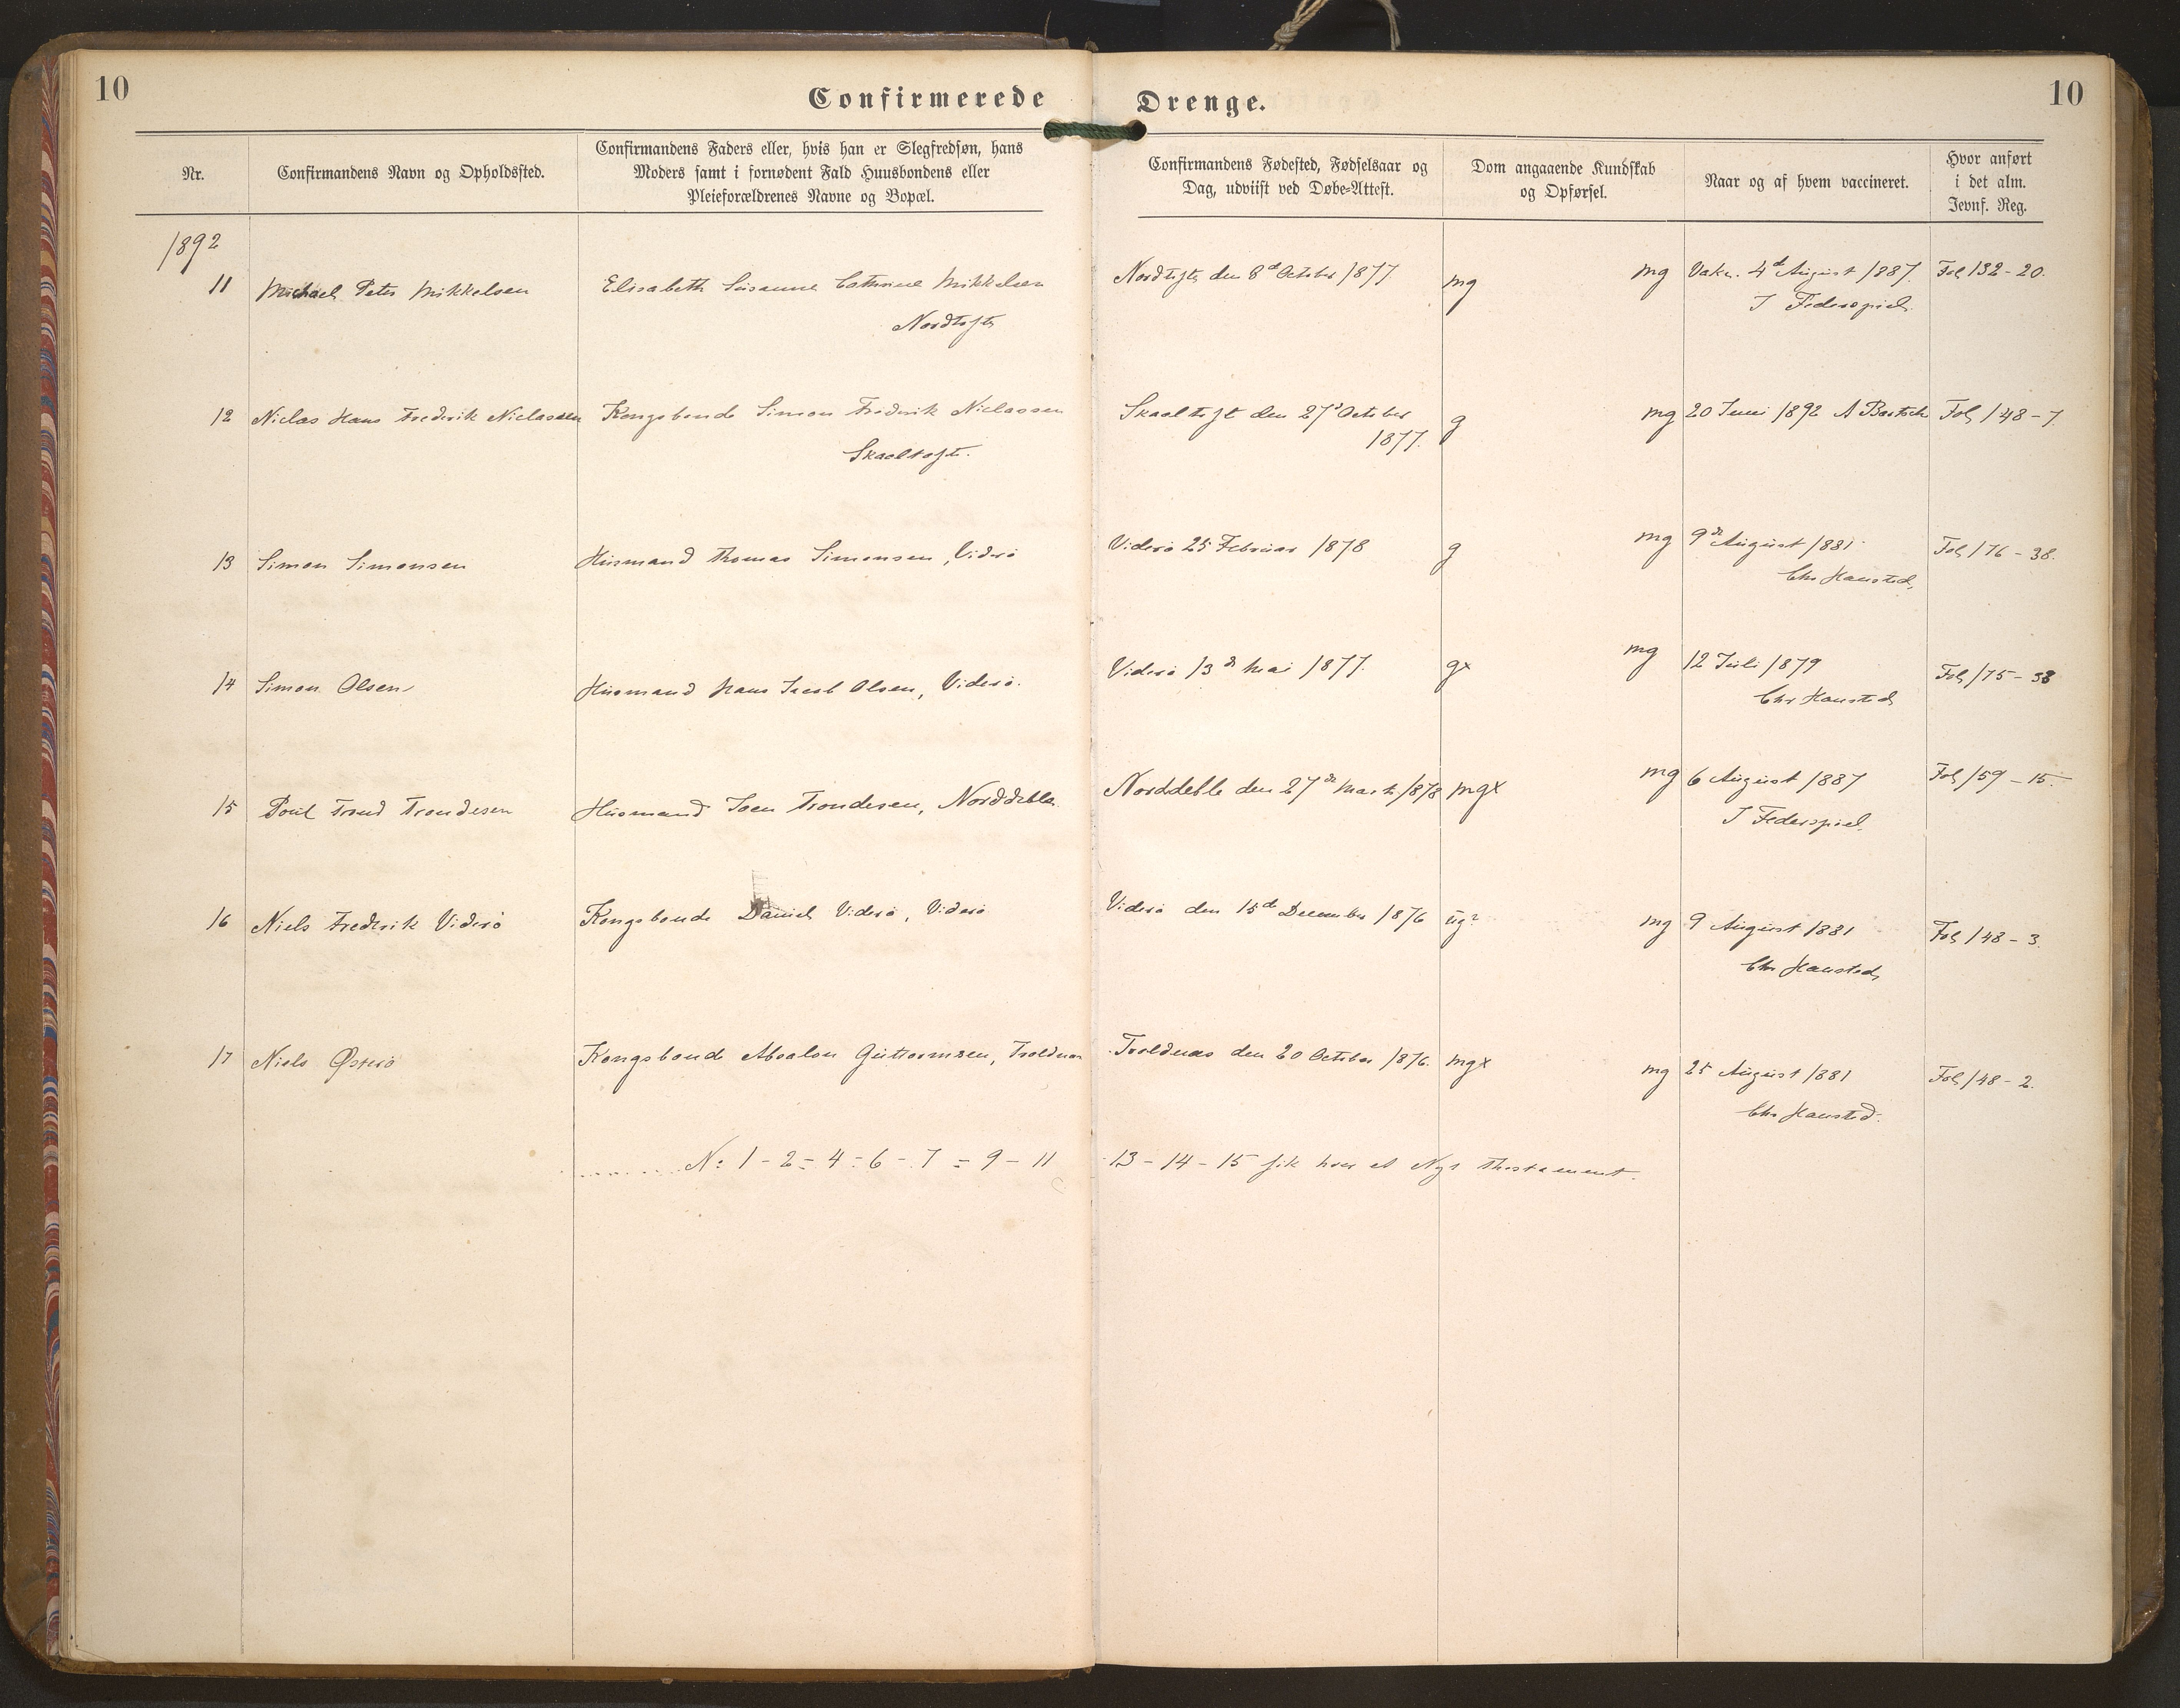 10
Confirmerede Drenge.
10
Nr.
Confirmandens Navn og Opholdssted.
Confirmandens Faders eller, hvis han er Slegfredsøn, hans
Moders samt i fornødent Fald Huusbondens eller
Pleieforældrenes Navne og Bopæl.
Confirmandens Fødested, Fødselsaar og
Dag, udviist ved Døbe-Attest.
Dom angaaende Kundskab
og Opførsel.
Naar og af hvem vaccineret.
Hvor anført
i det alm.
Jevnf. Reg.
1892
11 Michael Peter Mikkelsen Elisabeth Susanne Cathrine Mikkelsen Nordtofte den 8d October 1877 mg mg Vakn. 4d August 1887. Fol 132-20.
Nordtofte J Federspiel
12 Niclas Hans Frederik Niclassen Kongsbonde Simon Frederik Niclassen Skaaltoft den 27d October g mg 20 Juni 1892 A Bartsch Fol 148-7
Skaaltofte. 1877.
13 Simon Simonsen Husmand Thomas Simonsen, Viderø Viderø 25 Februar 1878 g mg 9de August 1881 Fol 176-38.
Chr Hansted,
14 Simon Olsen Husmand Hans Jacob Olsen, Viderø. Viderø 13de Mai 1877. gx mg 12 Juli 1879 Fol 175-38
Chr Hansted
15 Poul Trond Trondesen Husmand Joen Trondesen, Norddeble. Norddeble den 27de Marts 1878 mgx mg 6 August 1887 Fol 159-15.
J Federspiel.
16 Niels Frederik Viderø Kongsbonde Daniel Viderø, Viderø Viderø den 15de December 1876 ug? mg 9 August 1881 Fol 148-3.
Chr Hansted
17 Niels Østerø Kongsbonde Absalon Guttormsen, Troldnæs Troldnæs den 20 October 1876. mgx mg 25 August 1881 Fol 148-2.
Chr Hansted.
N: 1-2-4-6-7-9-11 -13-14-15 fik hver et Nyt Thestament.